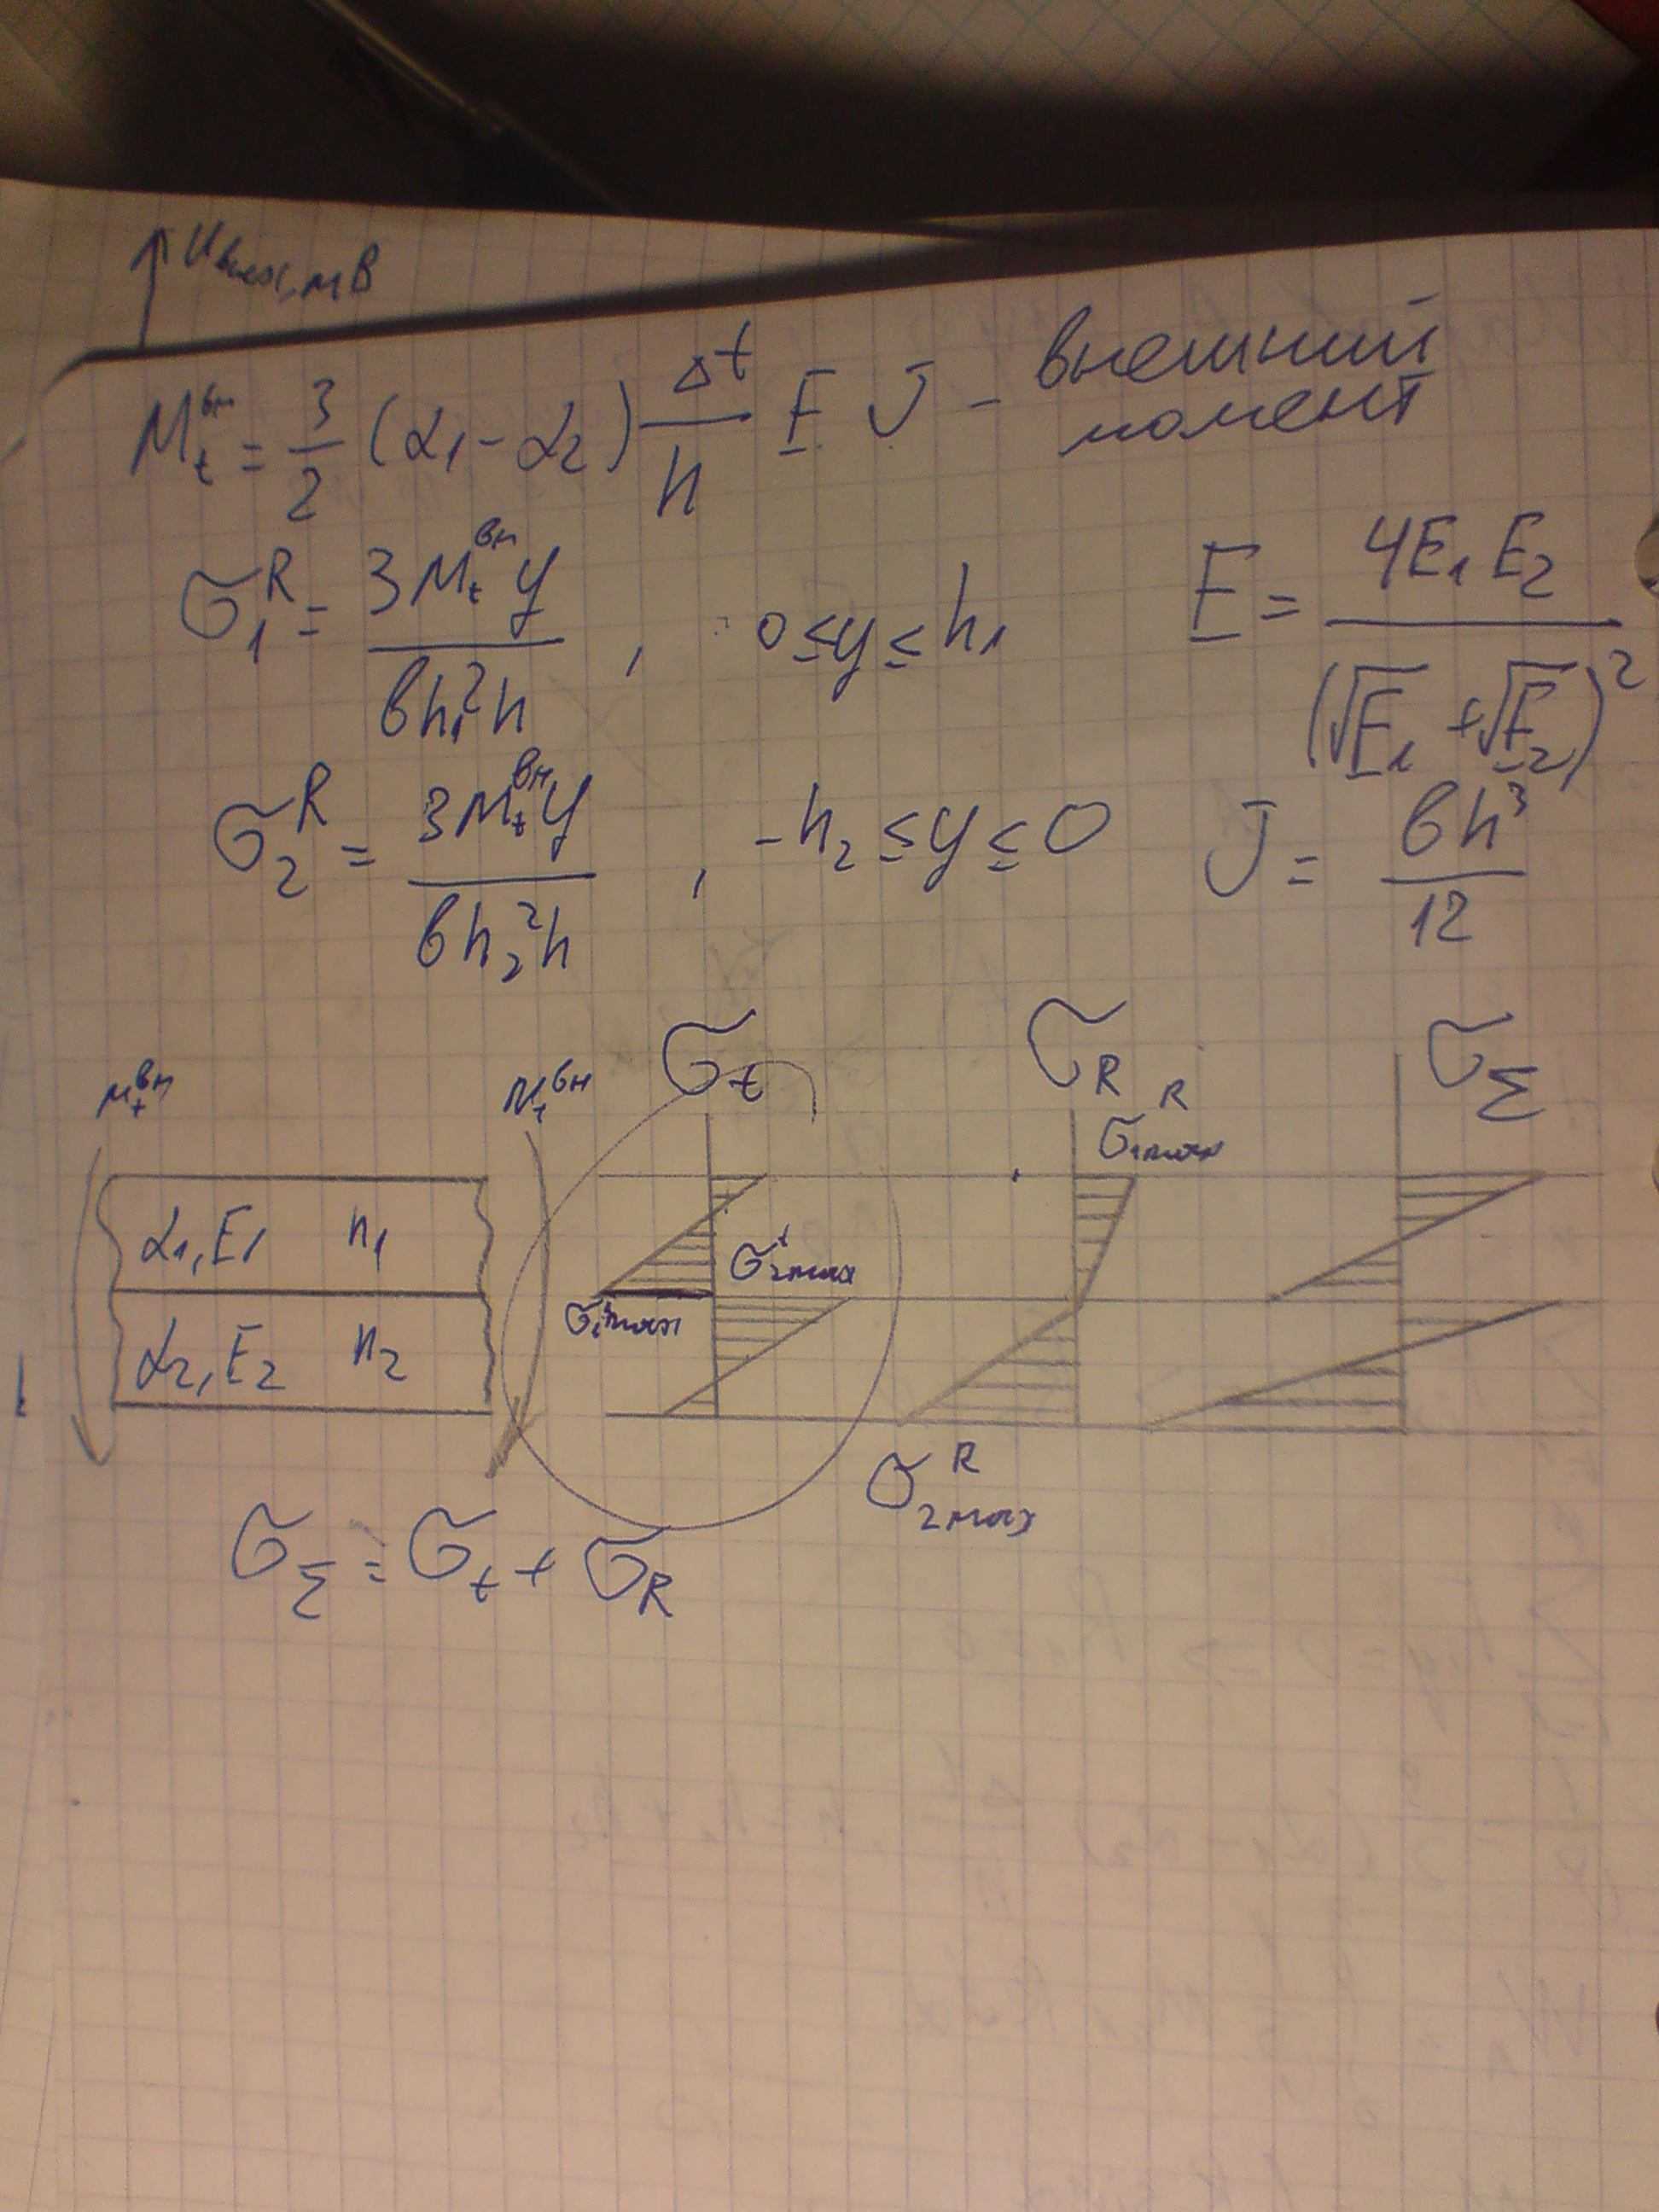 Uвых, мВ
M_t^вн = 3/2 (α1 - α2) Δt/h E J - внешний момент
σ_1^R = 3M_t^вн y / (bh_1^2 h), 0 ≤ y ≤ h1
E = 4E1E2 / (√E1 + √E2)^2
σ_2^R = 3M_t^вн y / (bh_2^2 h), -h2 ≤ y ≤ 0
J = bh^3 / 12
M_t^вн
M_t^вн
σ_t
σ_R
σ_Σ
σ_1max^R
α1, E1 h1
σ_2max^t
σ_1max^t
α2, E2 h2
σ_2max^R
σ_Σ = σ_t + σ_R